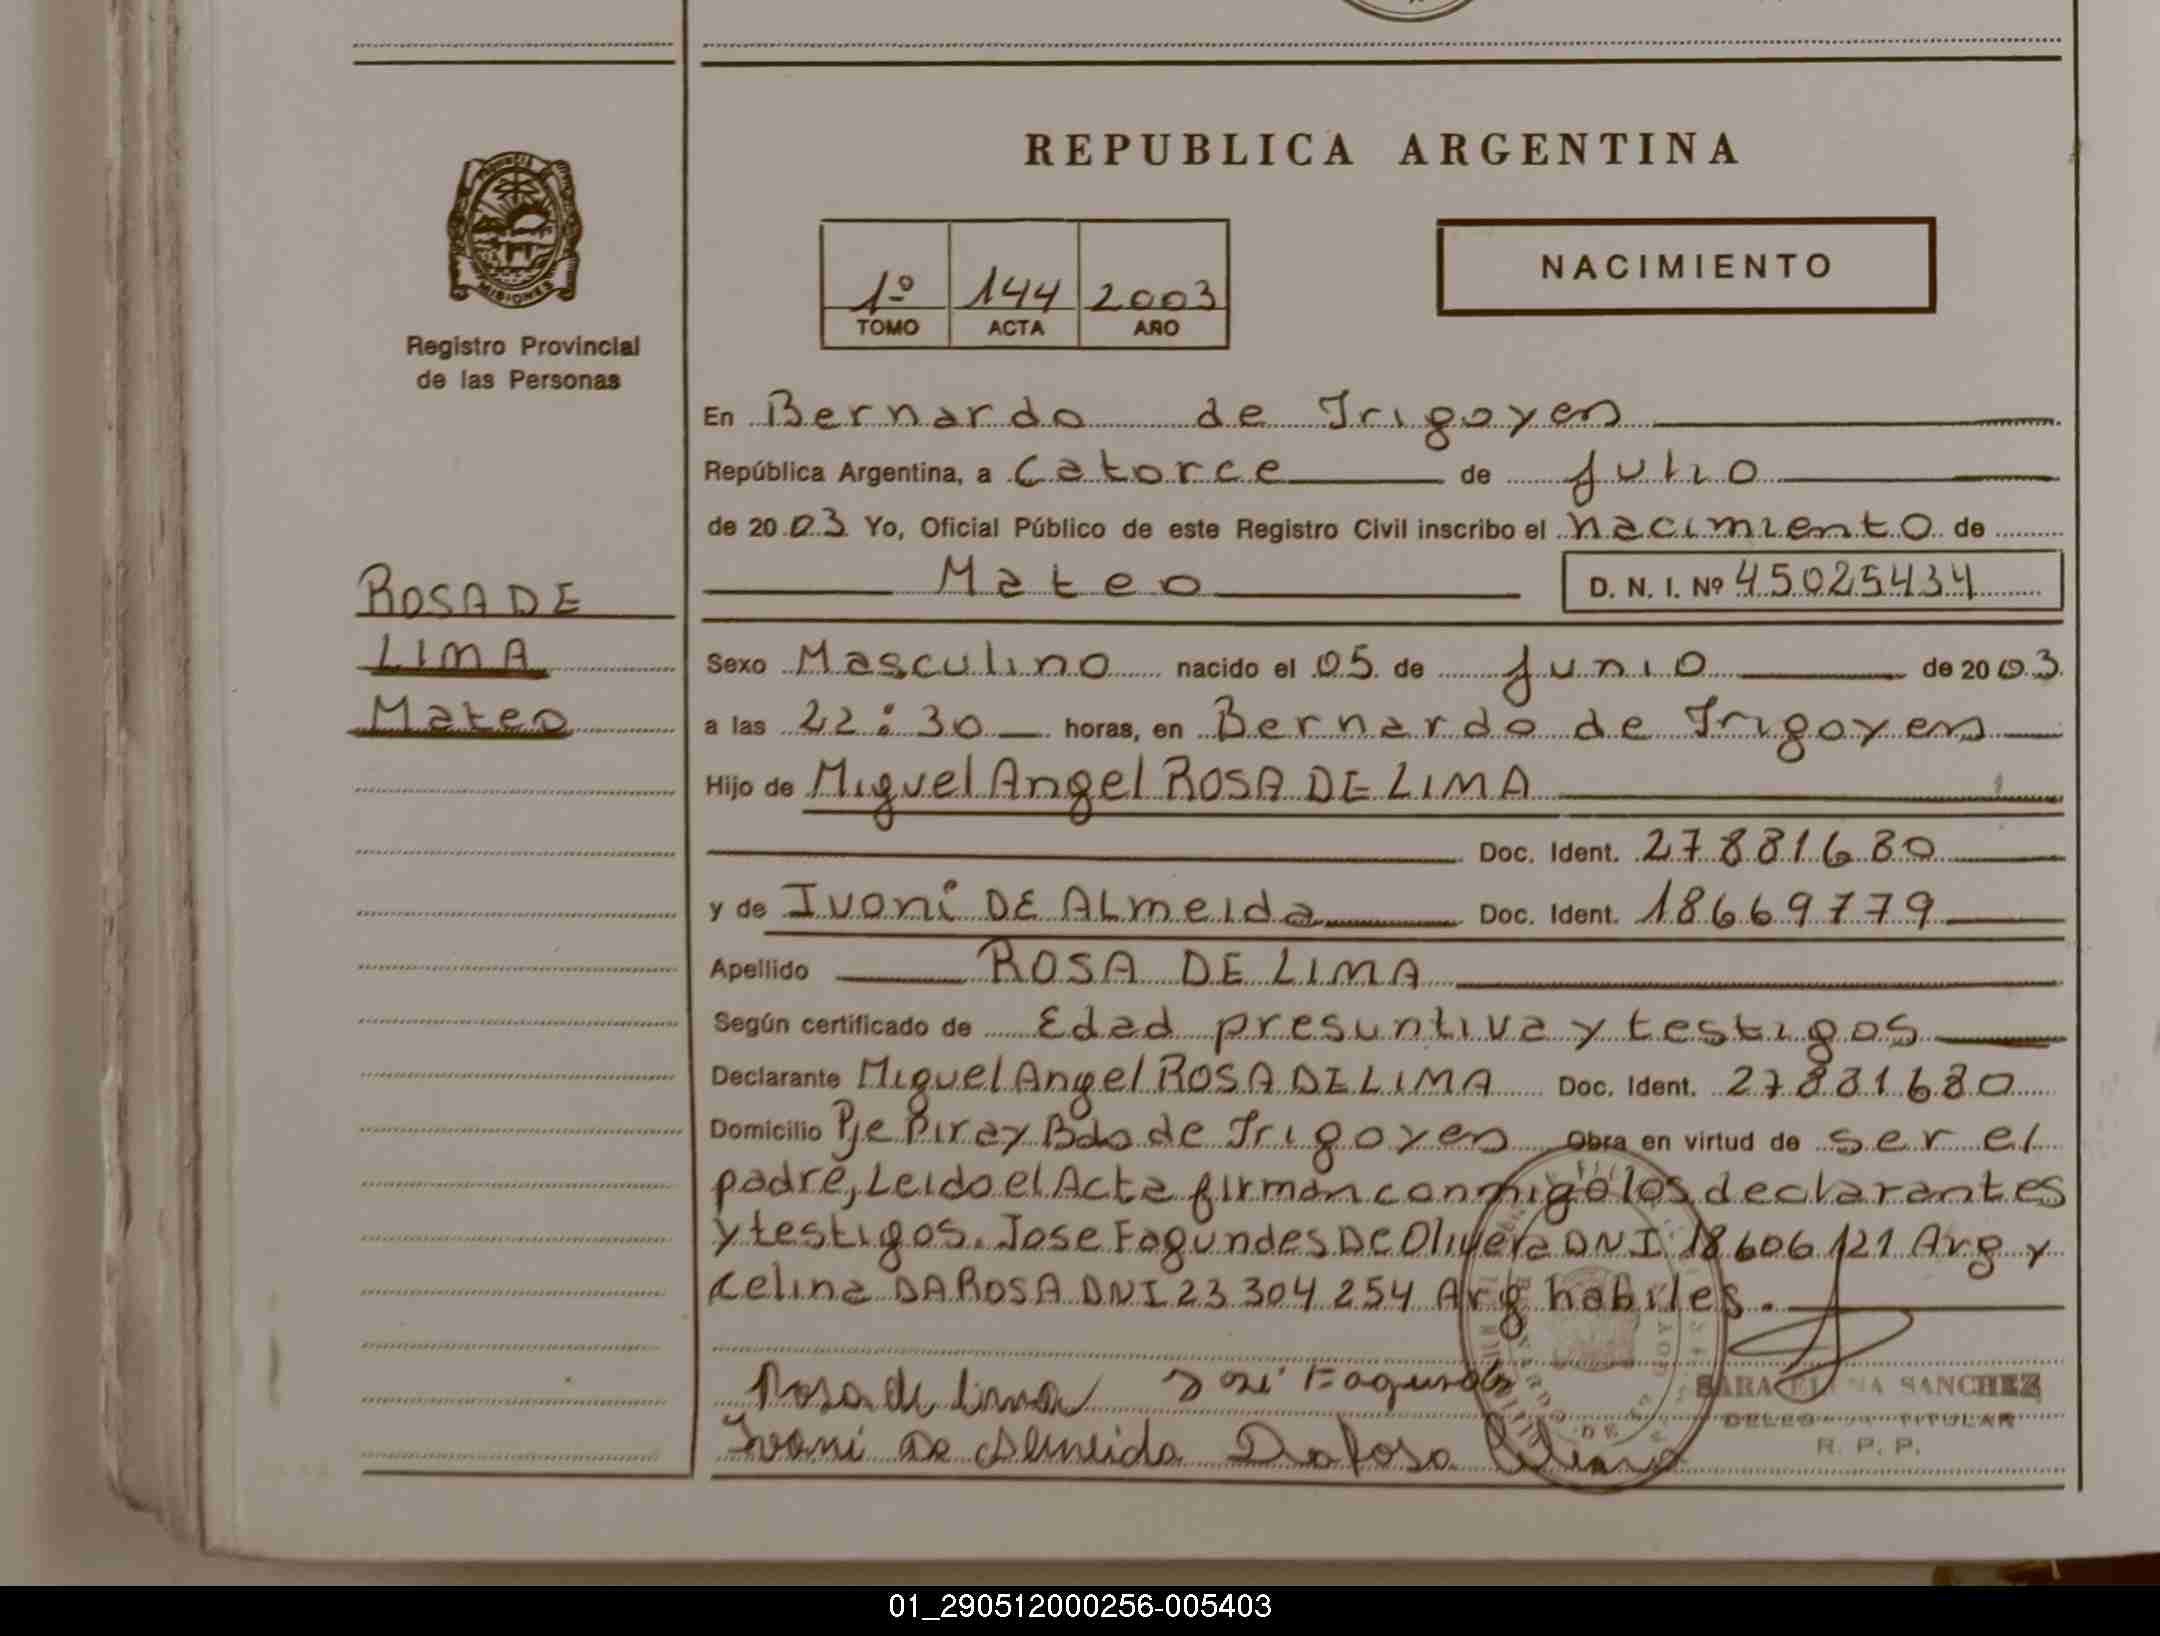 REPUBLICA ARGENTINA
MISIONES
Registro Provincial
de las Personas
1º 144 2003
TOMO ACTA AÑO
NACIMIENTO
ROSA DE
LIMA
Mateo
En Bernardo de Irigoyen
República Argentina, a Catorce de Julio
de 2003 Yo, Oficial Público de este Registro Civil inscribo el nacimiento de
Mateo D. N. I. Nº 45025434
Sexo Masculino nacido el 05 de Junio de 2003
a las 22:30 horas, en Bernardo de Irigoyen
Hijo de Miguel Angel ROSA DE LIMA
Doc. Ident. 27881680
y de Ivoni DE ALmeida Doc. Ident. 18669779
Apellido ROSA DE LIMA
Según certificado de Edad presuntiva y testigos
Declarante Miguel Angel ROSA DE LIMA Doc. Ident. 27881680
Domicilio Pje Piray Bdo de Irigoyen Obra en virtud de ser el
padre, Leido el Acta firman conmigo los declarantes
y testigos. Jose Fagundes De Olivera DNI 18606121 Arg y
Celina DA ROSA DNI 23 304 254 Arg habiles.
Rosa de Lima José Fagundes
Ivoni De Almeida Da Rosa Celina
SARA SANCHEZ
TITULAR
R. P. P.
01_290512000256-005403